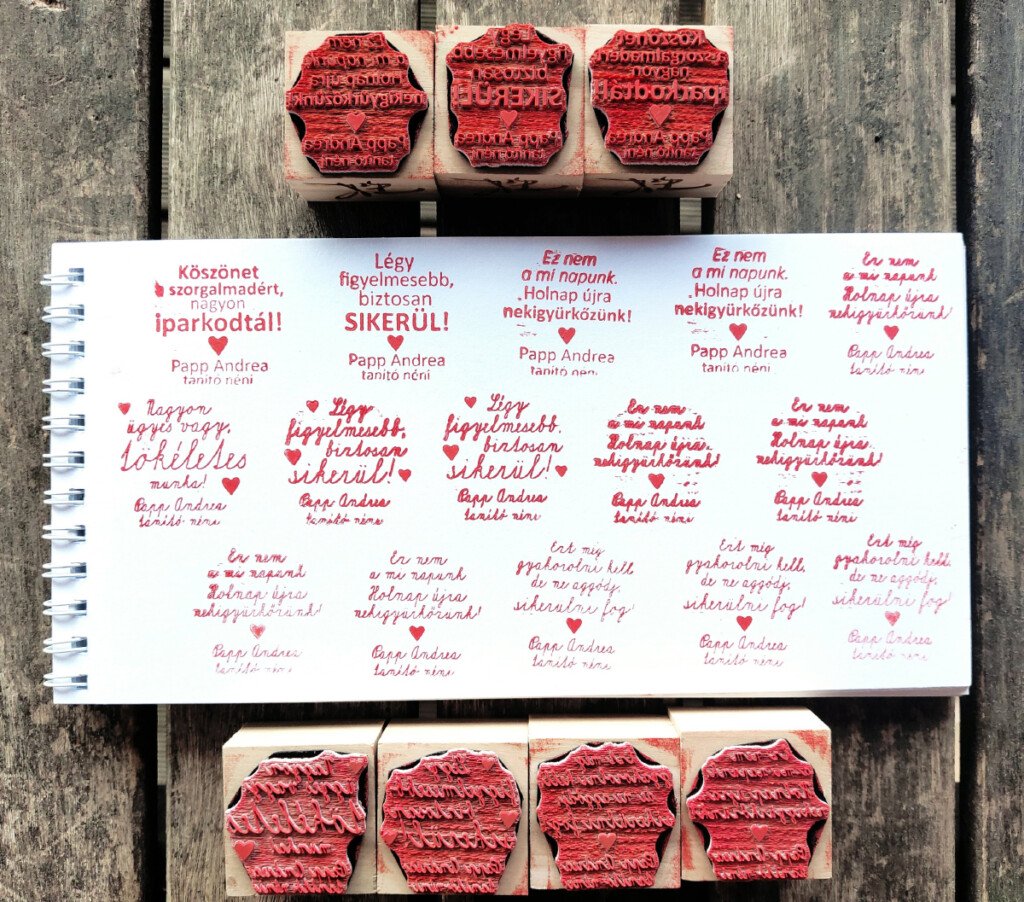 Ez nem
a mi napunk.
Holnap újra
nekigyürkőzünk!
Papp Andrea
tanító néni
Légy
figyelmesebb,
biztosan
SIKERÜL!
Papp Andrea
tanító néni
Köszönet
a szorgalmadért,
nagyon
iparkodtál!
Papp Andrea
tanító néni
Köszönet
a szorgalmadért,
nagyon
iparkodtál!
Papp Andrea
tanító néni
Légy
figyelmesebb,
biztosan
SIKERÜL!
Papp Andrea
tanító néni
Ez nem
a mi napunk.
Holnap újra
nekigyürkőzünk!
Papp Andrea
tanító néni
Ez nem
a mi napunk.
Holnap újra
nekigyürkőzünk!
Papp Andrea
tanító néni
Ez nem
a mi napunk
Holnap újra
nekigyürkőzünk!
Papp Andrea
tanító néni
Nagyon
ügyes vagy,
tökéletes
munka!
Papp Andrea
tanító néni
Légy
figyelmesebb,
biztosan
sikerül!
Papp Andrea
tanító néni
Légy
figyelmesebb,
biztosan
sikerül!
Papp Andrea
tanító néni
Ez nem
a mi napunk
Holnap újra
nekigyürkőzünk!
Papp Andrea
tanító néni
Ez nem
a mi napunk
Holnap újra
nekigyürkőzünk!
Papp Andrea
tanító néni
Ez nem
a mi napunk
Holnap újra
nekigyürkőzünk!
Papp Andrea
tanító néni
Ez nem
a mi napunk
Holnap újra
nekigyürkőzünk!
Papp Andrea
tanító néni
Ezt még
gyakorolni kell,
de ne aggódj,
sikerülni fog!
Papp Andrea
tanító néni
Ezt még
gyakorolni kell,
de ne aggódj,
sikerülni fog!
Papp Andrea
tanító néni
Ezt még
gyakorolni kell,
de ne aggódj,
sikerülni fog!
Papp Andrea
tanító néni